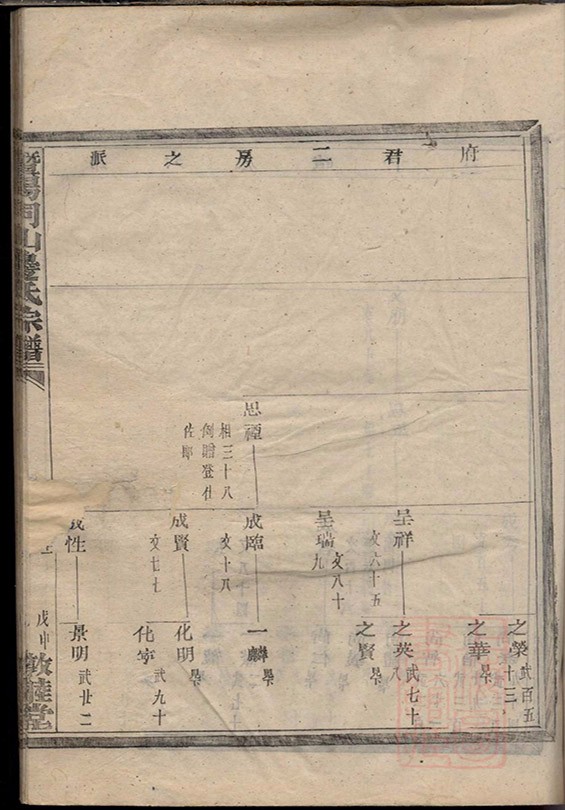 府君二房之派
思禋
相三十八
例贈登仕
佐郎
呈祥
文六十五
呈瑞
文八十九
成臨
文十八
成賢
文廿七
性
之榮
武百五十三
之華
之英
武七十八
之賢
一麟
化明
化寧
武九十
景明
武廿二
暨陽同山邊氏宗譜
戊申
敦睦堂